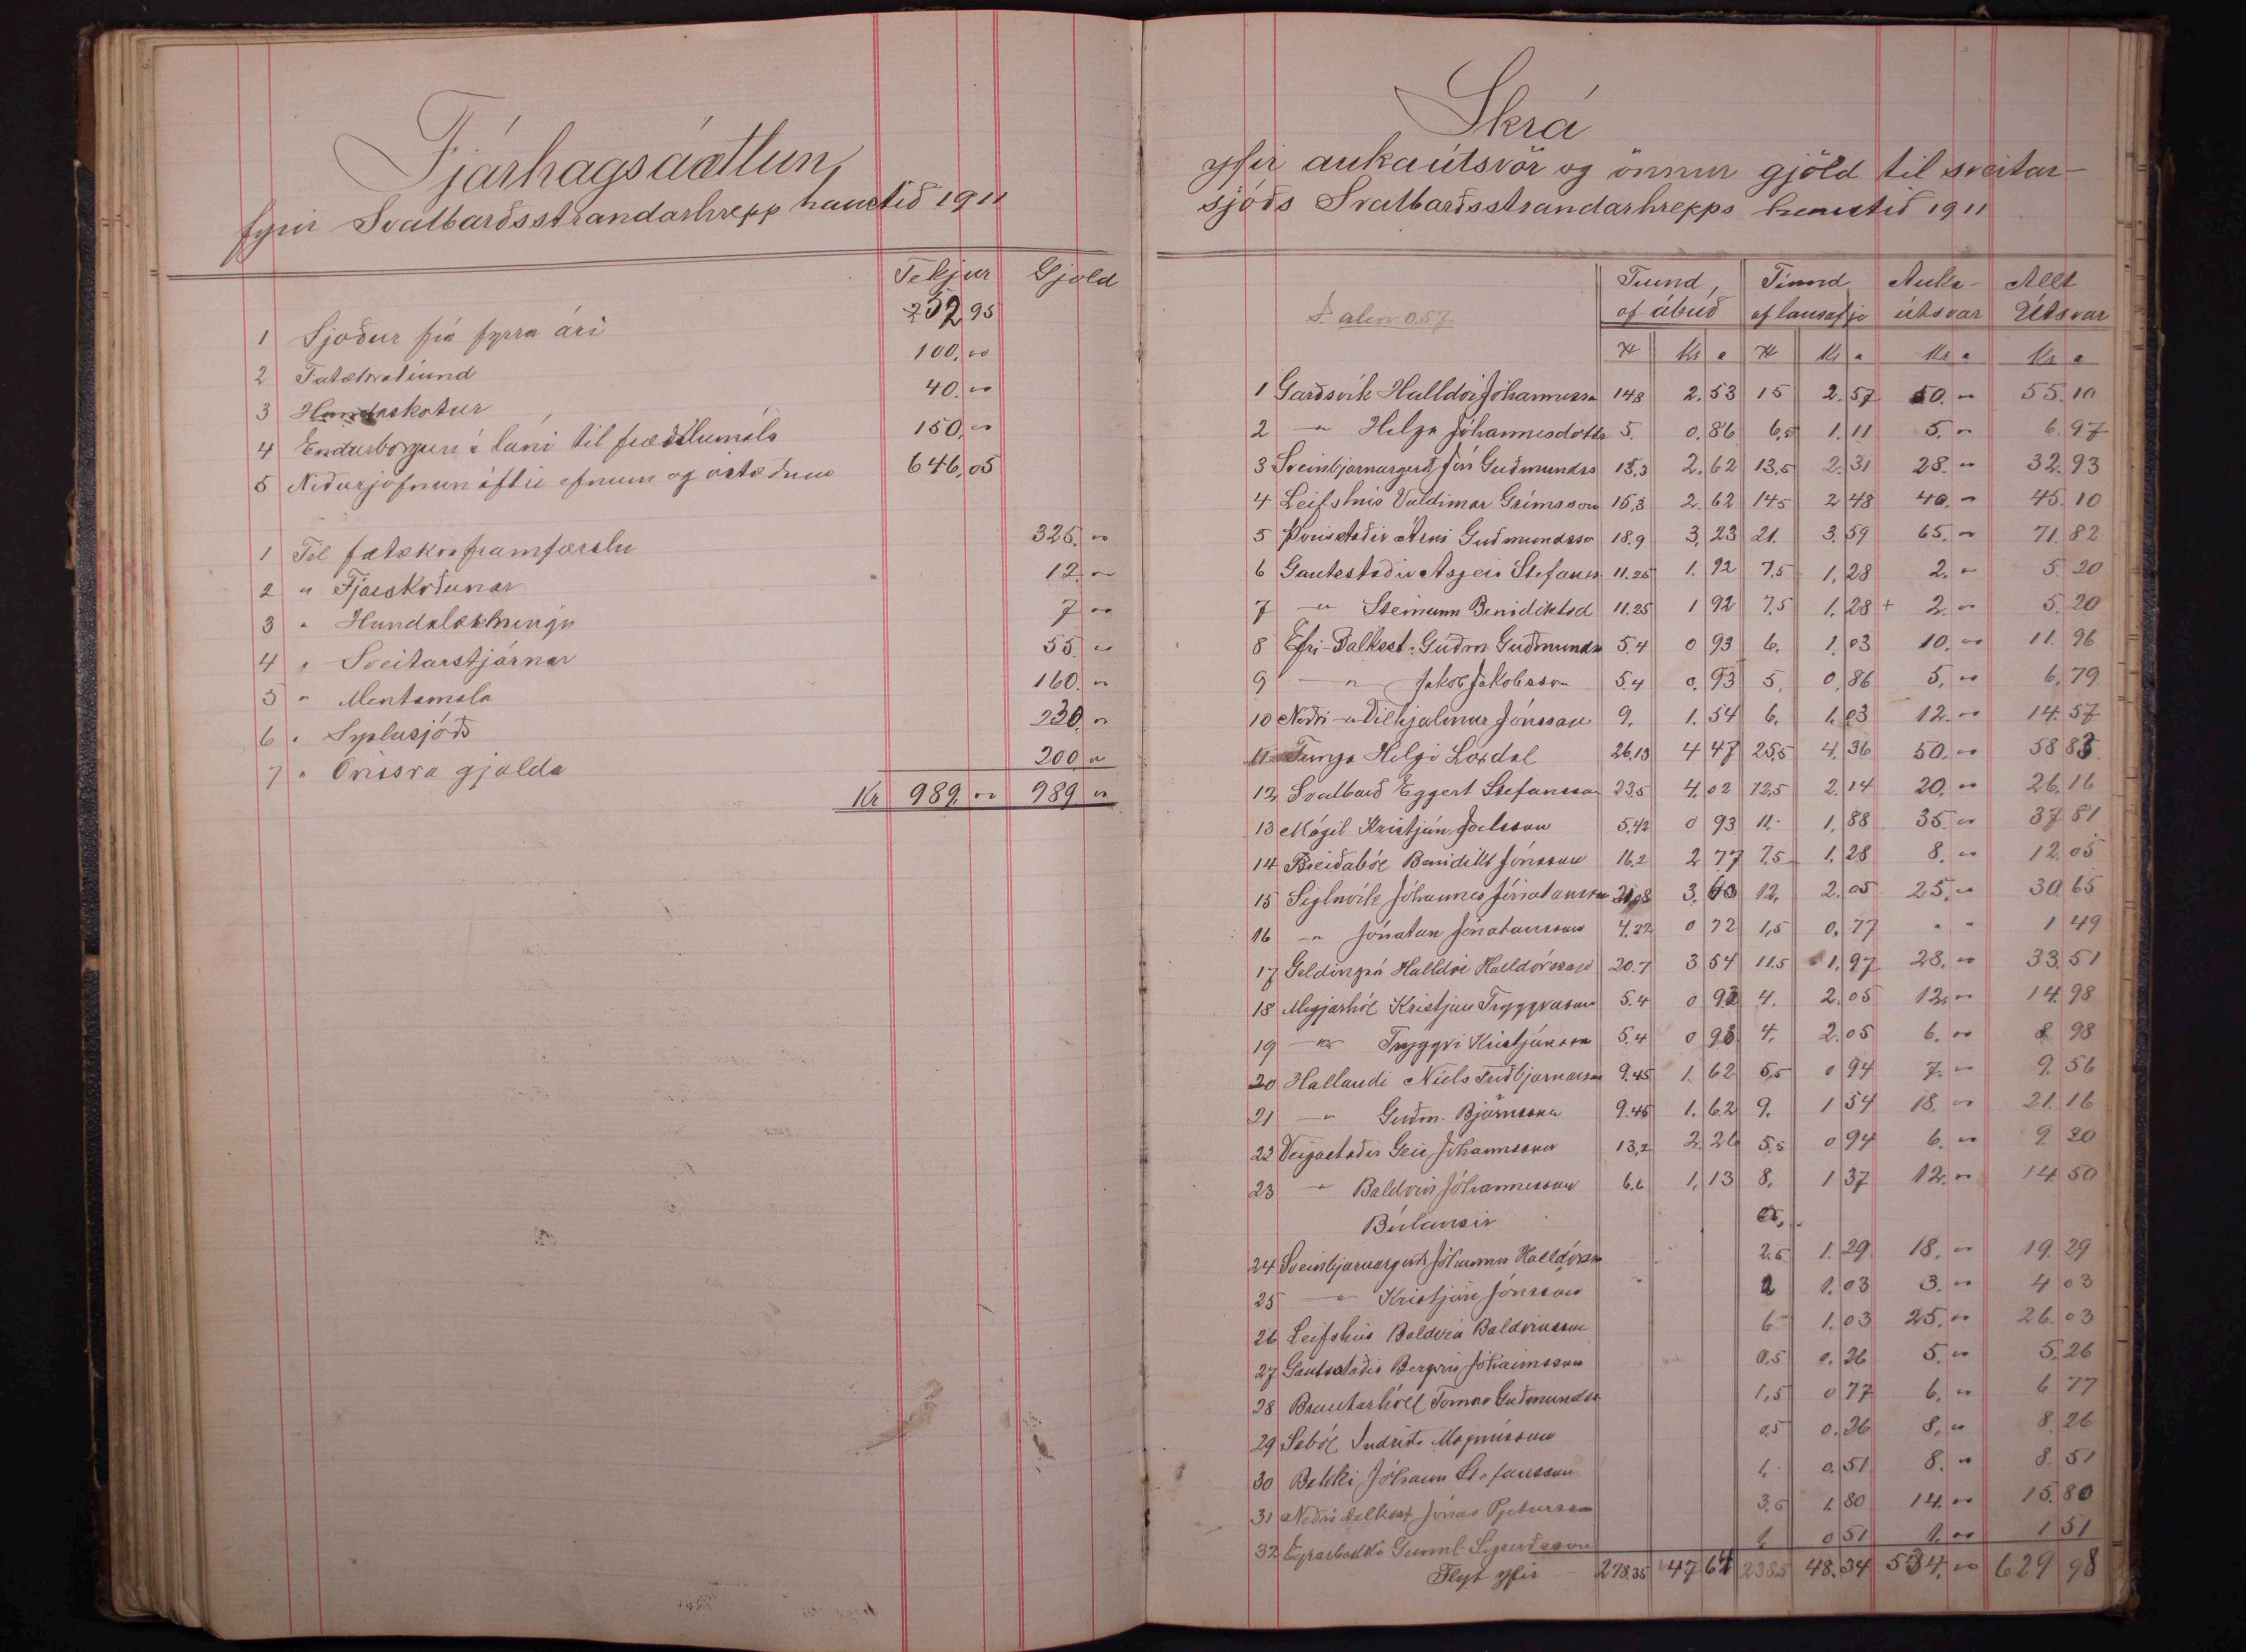 Fjárhagsáætlun
fyrir Svalbarðsstrandarhrepp haustið 1911
Tekjur Gjöld
1 Sjóður frá fyrra ári 252,95
2 Fátækratíund 100,00
3 Hundaskatur 40.00
4 Endurborgun á láni til fræðslumála 150,00
5 Niðurjöfnun eftir efnum og ástæðum 646,05
1 Til fátækraframfærslu 325.00
2 " Fjárskoðunar 12,00
3 " Hundalækninga 7 00
4 " Sveitarstjórnar 55.00
5 " Mentamála 160.00
6 " Sýslusjóðs 230.00
7 " Ýmissra gjalda 200 00
Kr 989.00 989 00
Skrá
yfir aukaútsvör og önnur gjöld til sveitar-
sjóðs Svalbarðsstrandarhrepps haustið 1911
Tíund af ábúð Tíund af lausafje Auka-útsvar Allt Útsvar
alin 0.57
Kr a Kr a Kr a Kr a
1 Garðsvík Halldór Jóhannesson 14.8 2.53 15 2.57 50.00 55.10
2 " Helga Jóhannesdóttir 5. 0,86 6,5 1.11 5.00 6.97
3 Sveinbjarnargerði Jón Guðmundss 15.3 2,62 13,5 2.31 28.00 32.93
4 Leifshús Valdimar Grímsson 15,3 2.62 14.5 2 48 40.00 45.10
5 Þórisstaðir Árni Guðmundsson 18.9 3,23 21. 3.59 65.00 71.82
6 Gautsstaðir Ásgeir Stefánss 11.25 1.92 7,5 1,28 2,00 5.20
7 " Steinunn Benidiktsd 11.25 1 92 7,5 1.28 + 2.00 5.20
8 Efri-Dálksst. Guðm Guðmundss 5.4 0 93 6. 1,03 10,00 11.96
9 " Jakob Jakobsson 5.4 0.93 5. 0,86 5,00 6,79
10 Neðri " Vilhjálmur Jónsson 9. 1.54 6. 1.03 12.00 14.57
11 Tunga Helgi Laxdal 26,13 4 47 25,5 4.36 50.00 58 83
12 Svalbarð Eggert Stefánsson 23.5 4.02 12,5 2.14 20.00 26.16
13 Mógil Kristján Jóelsson 5.42 0 93 11. 1,88 35.00 37 81
14 Breiðaból Benidikt Jónsson 16,2 2 77 7.5 1.28 8.00 12.05
15 Sigluvík Jóhannes Jónatansson 21,08 3.60 12, 2.05 25.00 30 65
16 " Jónatan Jónatansson 4.22 0 72 1,5 0,77 " " 1 49
17 Geldingsá Halldór Halldórsson 20.7 3 54 11.5 1,97 28.00 33.51
18 Meyjarhól Kristján Tryggvason 5.4 0 93 4. 2.05 12.00 14.98
19 " Tryggvi Kristjánsson 5.4 0 93 4. 2.05 6.00 8 98
20 Hallandi Níels Friðbjarnarson 9.45 1.62 5,5 0 94 7.00 9.56
21 " Guðm. Björnsson 9.45 1.62 9. 1 54 18.00 21.16
22 Veigastaðir Geir Jóhannsson 13,2 2.26 5.5 0 94 6.00 9 20
23 " Baldvin Jóhannesson 6.6 1,13 8. 1 37 12.00 14.50
Búlausir
24 Sveinbjarnargerði Jóhannes Halldórsson 2.5 1.29 18.00 19.29
25 " Kristján Jónsson 2 1.03 3.00 4 03
26 Leifshús Baldvin Baldvinsson 6 1.03 25.00 26.03
27 Gautsstaðir Bergvin Jóhannsson 0,5 0.26 5.00 5.26
28 Brautarhóll Tómas Guðmundss 1,5 0 77 6.00 6 77
29 Seból Indriði Magnússon 0,5 0.26 8.00 8.26
30 Bakki Jóhann Stefánsson 1. 0.51 8.00 8.51
31 Neðri Dálksst Jónas Pjetursson 3.5 1.80 14.00 15.80
32 Eyrarbakka Gunnl. Sigurðsson 1. 0 51 1.00 1 51
Flyt yfir 278.35 47 64 238.5 48.34 534.00 629 98